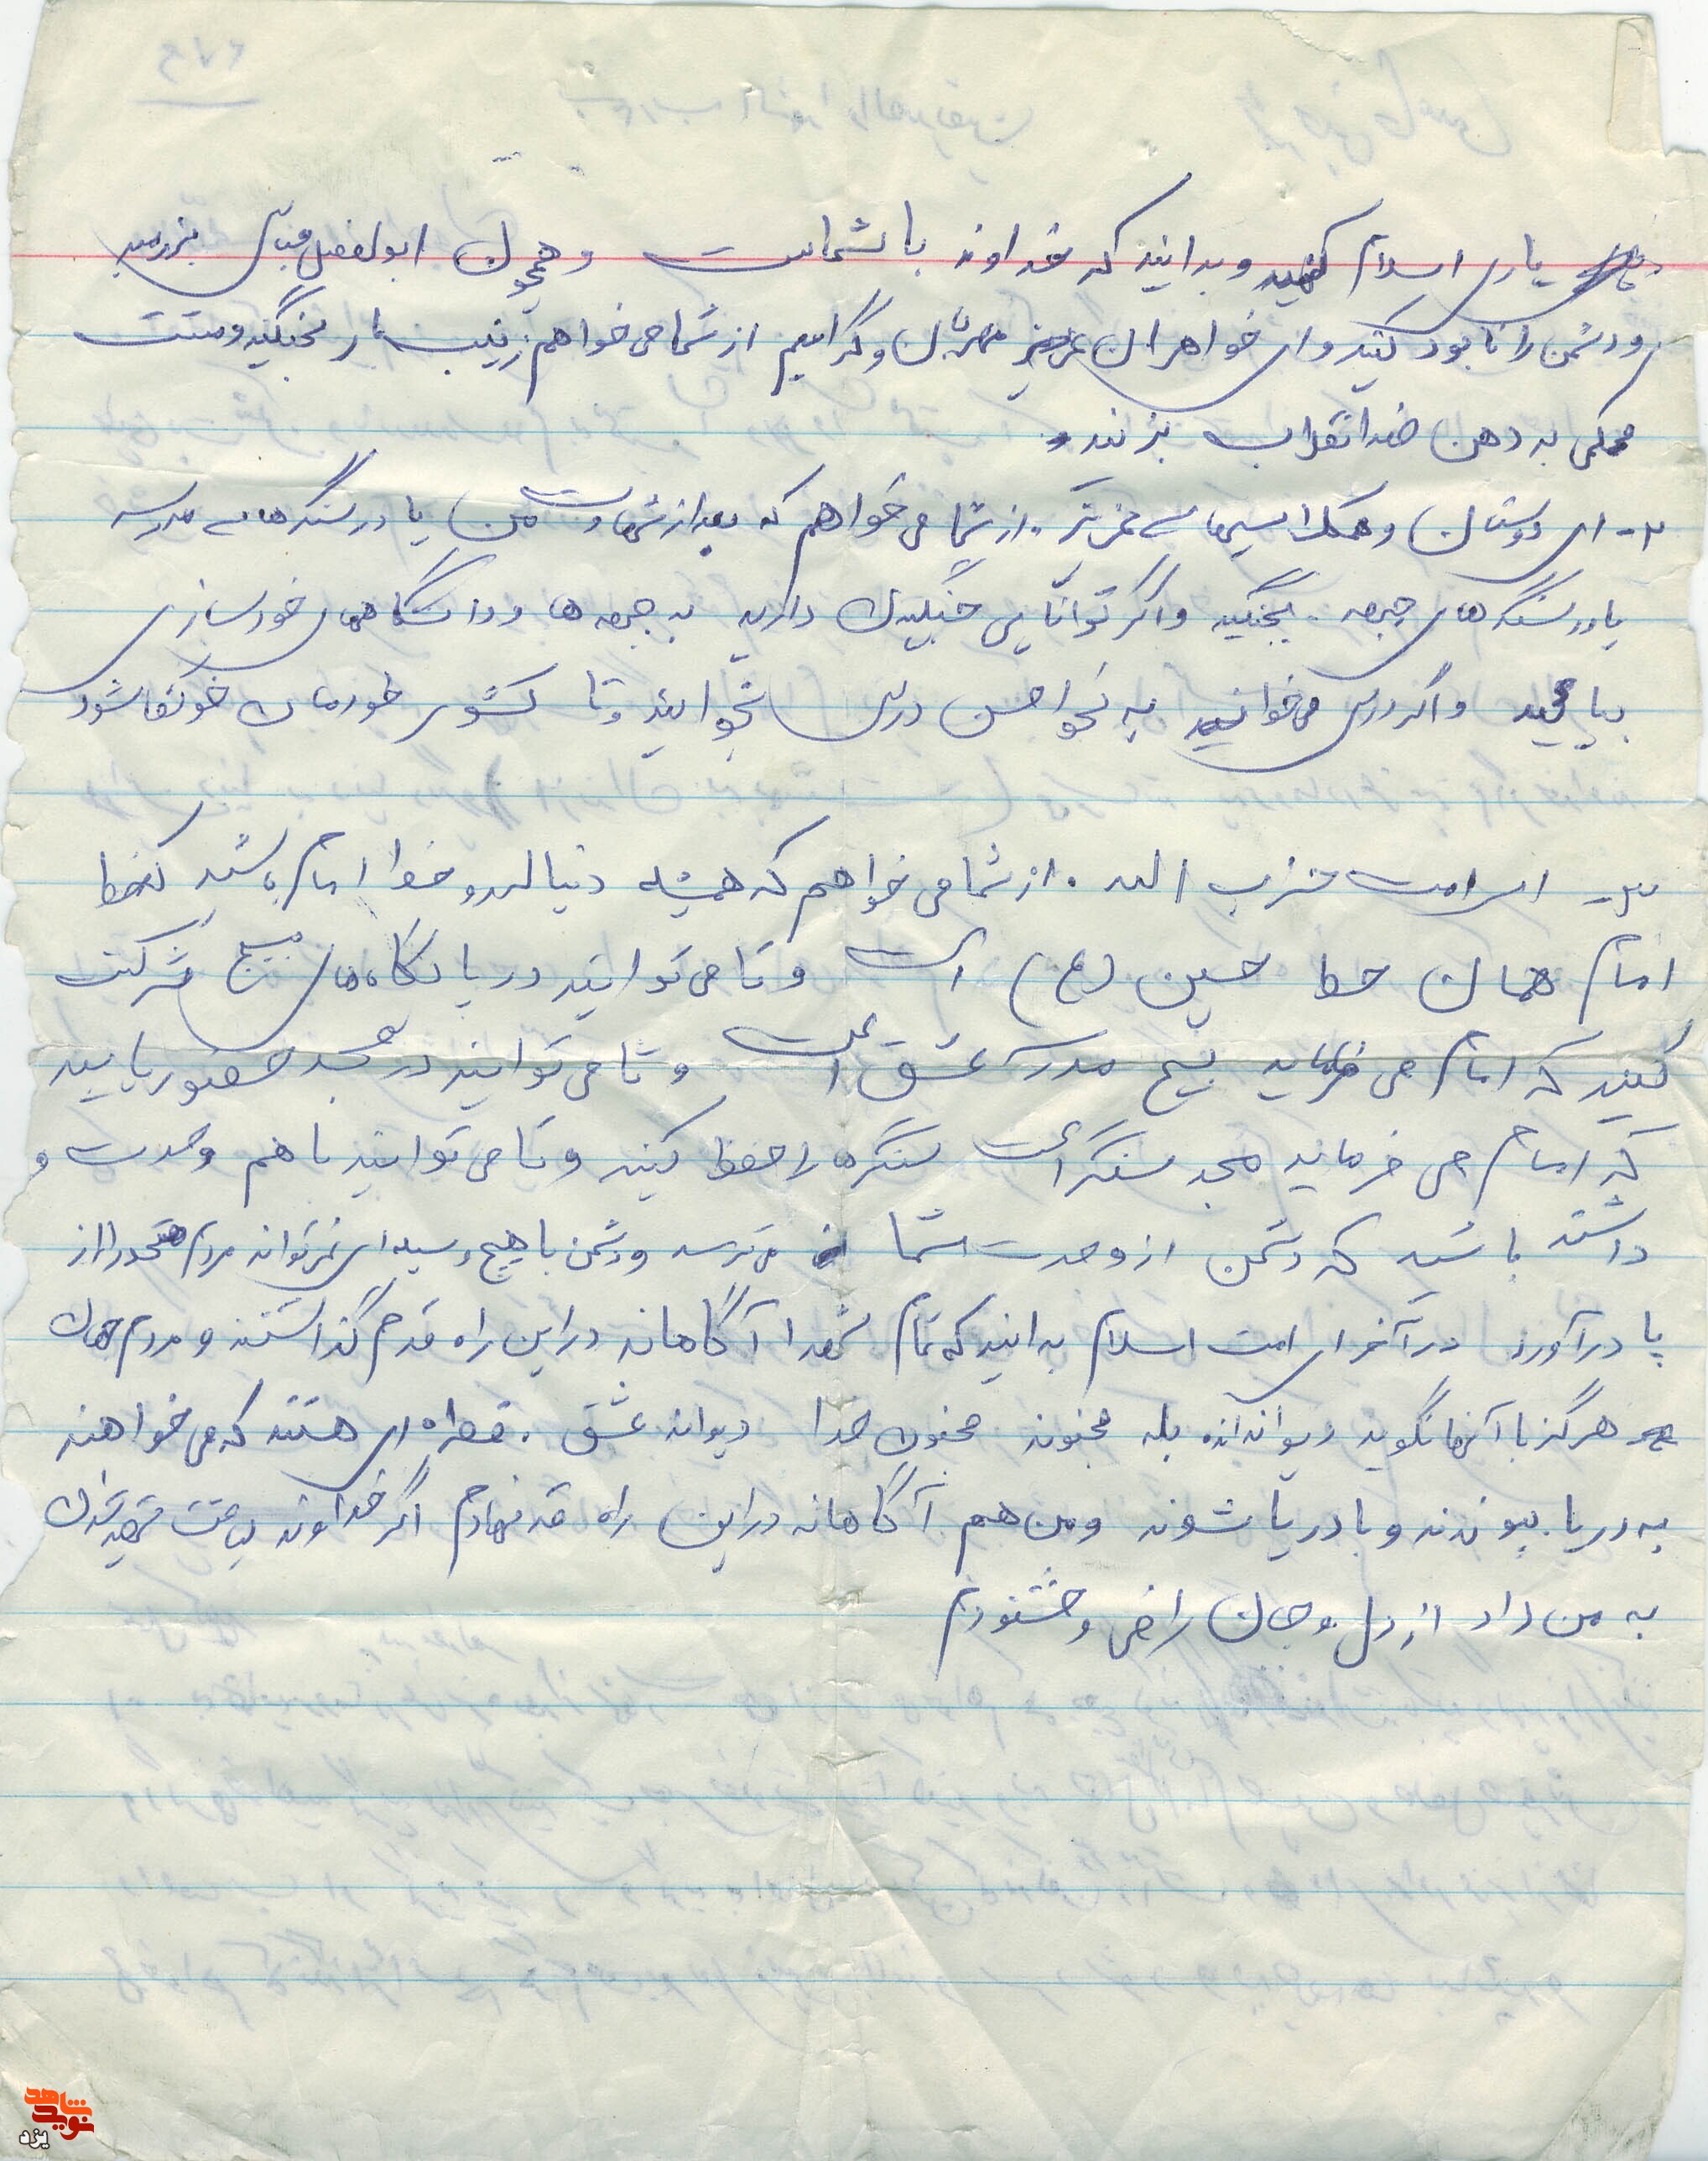 یاری اسلام کنید و بدانید که خداوند با شماست و همچون ابوالفضل عباس بزرمید
و دشمن را نابود کنید و ای خواهران عزیز مهربان و گرامیم از شما می خواهم زینب وار بجنگید و مشت
محکمی به دهن ضد انقلاب بزنند و
۲- ای دوستان و همکلاسیهای عزیزتر. از شما می خواهم که بعد از شهادت من یا در سنگرهای مدرسه
یا در سنگرهای جبهه بجنگید و اگر توانایی جنگیدن دارید به جبهه ها و دانشگاههای خودسازی
بیایید و اگر درس می خوانید به نحو احسن درس بخوانید و تا کشور خودمان خودکفا شود
۳- ای امت حزب الله . از شما می خواهم که همیشه دنباله رو خط امام باشید که خط
امام همان خط حسین (ع) است و تا می توانید در پایگاه های بسیج شرکت
کنید که امام می فرماید بسیج مدرسه عشق است و تا می توانید در مسجد حضور یابید
که امام می فرماید مسجد سنگر است سنگرها را حفظ کنید و تا می توانید با هم وحدت و
داشته باشید که دشمن از وحدت شما می ترسد و دشمن با هیچ وسیله ای نمی تواند مردم متحد را از
پا درآورد در آخر ای امت اسلام بدانید که تمام شهدا آگاهانه در این راه قدم گذاشتند و مردم جهان
هرگز با آنها نگوید دیوانه اند بله مجنونند مجنون خدا دیوانه عشق . قطره ای هستند که می خواهند
به دریا بپیوندند و با دریا شوند و من هم آگاهانه در این راه قدم نهادم اگر خداوند لیاقت شهید شدن
به من داد از دل و جان راضی و خشنودم
نوید شاهد
یزد